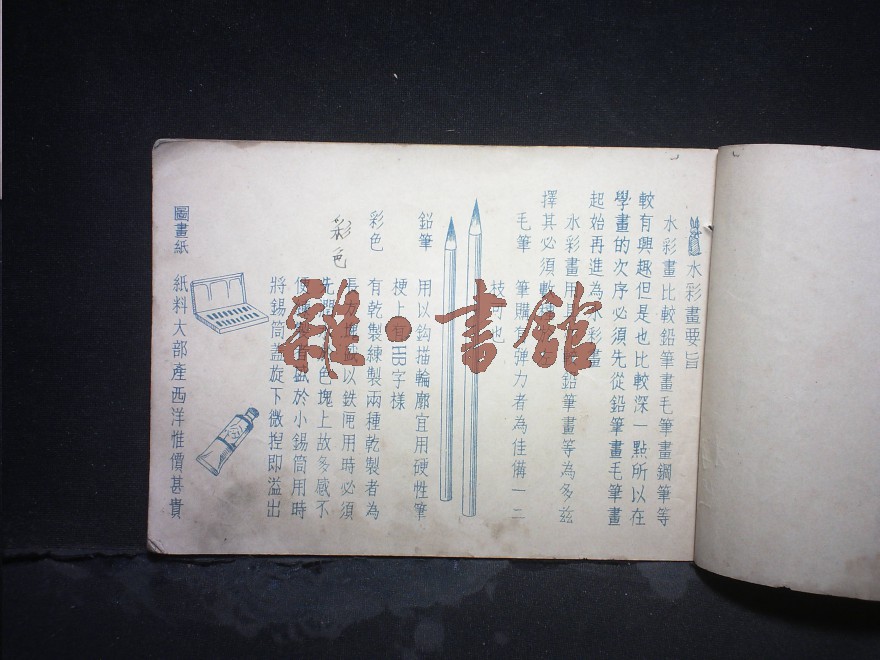 水彩畫要旨
水彩畫比較鉛筆畫毛筆畫鋼筆等
較有興趣但是也比較深一點所以在
學畫的次序必須先從鉛筆畫毛筆畫
起始再進為彩畫
水彩畫用具鉛筆畫等為多茲
擇其必須數
毛筆 筆賸有弹力者為佳備一二
枝可也
鉛筆 用以鈎描輪廓宜用硬性筆
梗上有HB字樣
彩色 有乾製練製兩種乾製者為
長方塊盛以鉄匣用時必須
彩色
先色塊上故多感不
便盛於小錫筒用時
將錫筒蓋旋下微捏即溢出
圖畫紙 紙料大部產西洋惟價甚貴
雜·書館